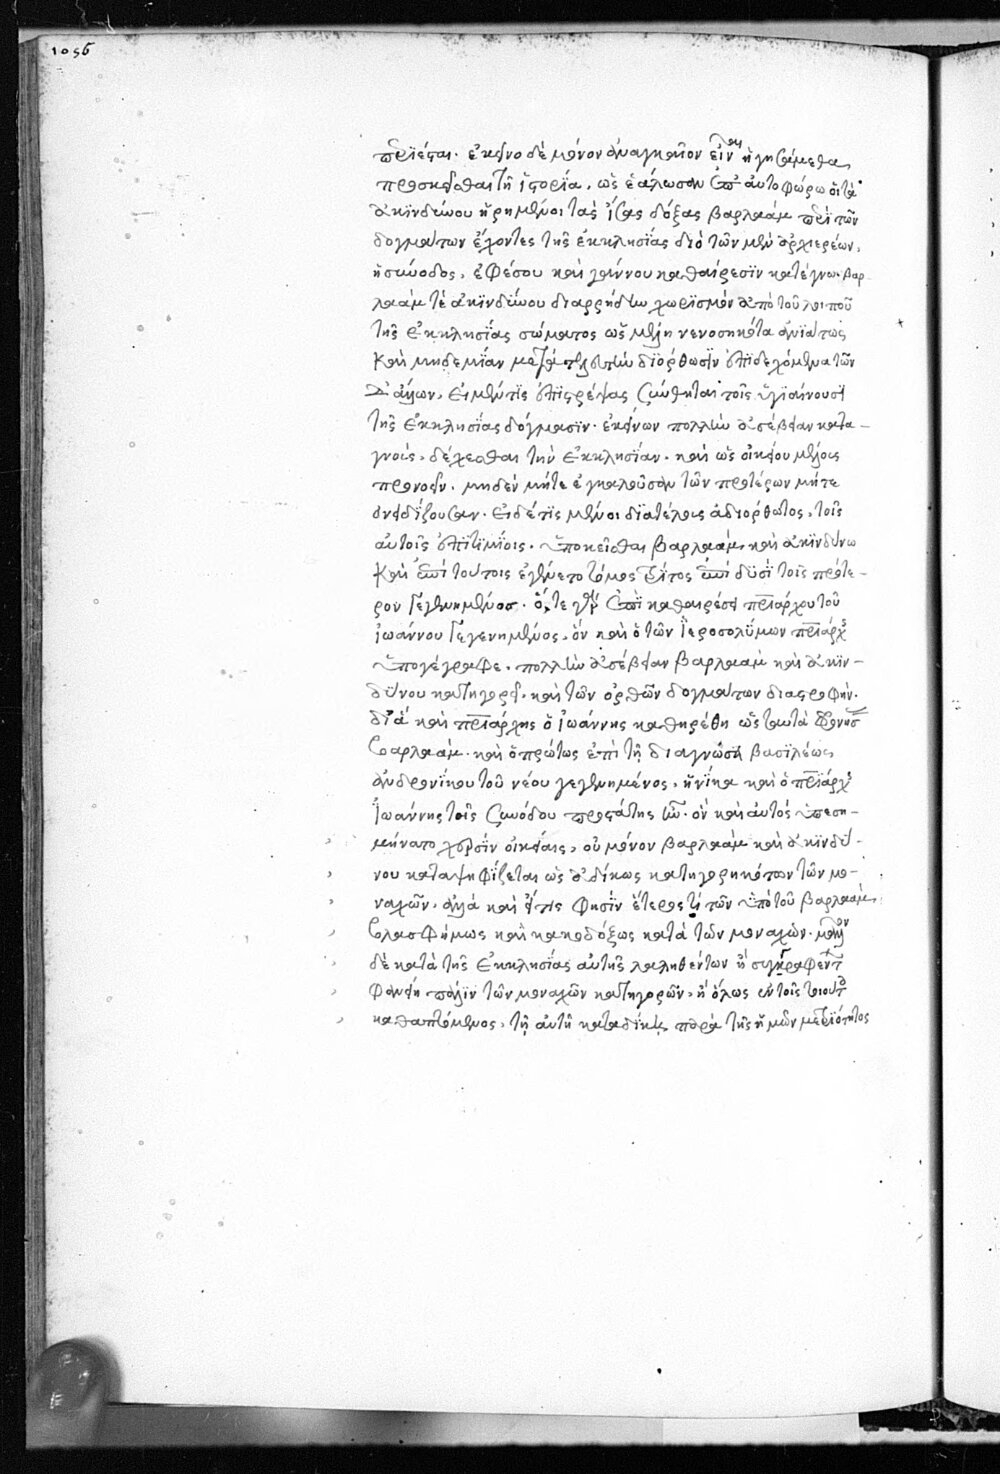 1056
περιέσται. ἐκεῖνο δὲ μόνον ἀναγκαῖον εἶναι ἡγησάμεθα
προσκεῖσθαι τῇ ἱστορία, ὡς ἑάλωσαν ἐπ' αὐτοφώρω οἱ τὰ
ἀκινδύνου ἡρημένοι τὰς ἴσας δόξας βαρλαὰμ περὶ τῶν
δογμάτων ἔχοντες τῆς ἐκκλησίας διὸ τῶν μὲν ἀρχιερέων,
ἡ σύνοδος, ἐφέσου καὶ γάννου καθαίρεσιν κατέγνω. βαρ-
λαάμ τὲ ἀκινδύνου διαρρήδην χωρισμὸν ἀπὸ τοῦ λοιποῦ
τῆς ἐκκλησίας σώματος ὡς μέλη νενοσηκότα ἀνιάτως
καὶ μηδεμίαν διόρθωσιν ἐπιδεχόμενα τῶν
δ' ἄλλων, εἰ μέν τις ἐπιστρέψας συνθῆται τοῖς ὑγιαίνουσι
τῆς ἐκκλησίας δόγμασιν. ἐκείνων πολλὴν ἀσέβειαν κατα-
γνοὺς, δέχεσθαι τὴν ἐκκλησίαν. καὶ ὡς οἰκείου μέλους
προνοεῖν. μηδὲν μήτε ἐγκαλοῦσαν τῶν προτέρων μήτε
ὀνειδίζουσαν. εἰ δέ τις μένοι διατέλους ἀδιόρθωτος, τοῖς
αὐτοῖς ἐπιτιμίοις. ὑποκεῖσθαι βαρλαὰμ καὶ ἀκινδύνω
καὶ ἐπὶ τούτοις ἐγένετο τόμος τρίτος ἐπὶ δυσὶ τοῖς πρότε-
ρον γεγενημένοις. ὅ, τε γὰρ ἐπὶ καθαιρέσει πριάρχου τοῦ
ἰωάννου γεγενημένος, ὃν καὶ ὁ τῶν ἱεροσολύμων πριάρχ
ὑπογέγραφε. πολλὴν ἀσέβειαν βαρλαὰμ καὶ ἀκιν-
δύνου κατηγορεῖ, καὶ τῶν ὀρθῶν δογμάτων διαστροφήν.
διὰ καὶ πριάρχης ὁ ἰωάννης καθηρέθη ὡς ταυτὰ φρονήσ
βαρλαάμ. καὶ ὁ πρώτως ἐπὶ τῇ διαγνώσει βασιλέως
ἀνδρονίκου τοῦ νέου γεγενημένος, ἡνίκα καὶ ὁ πριάρχ
ἰωάννης τοῖς συνόδου προστάτης ἦν. ὃν καὶ αὐτὸς ὑπεση-
μήνατο χερσὶν οἰκείαις, οὐ μόνον βαρλαὰμ καὶ ἀκινδύ-
νου καταψηφίζεται ὡς ἀδίκως κατηγορηκότων τῶν μο-
ναχῶν. ἀλλὰ καὶ εἴ τις φησὶν ἕτερος τὶ τῶν ὑπὸ τοῦ βαρλαὰμ
βλασφήμως καὶ κακοδόξως κατὰ τῶν μοναχῶν. μᾶλλον
δὲ κατὰ τῆς ἐκκλησίας αὐτῆς λαληθέντων ἢ συγγραφέντ
φανείη πάλιν τῶν μοναχῶν κατηγορῶν, ἢ ὅλως ἐν τοῖς τοιούτ
καθαπτόμενος, τῇ αὐτῇ καταδίκῃ παρὰ τῆς ἡμῶν μετριότητος